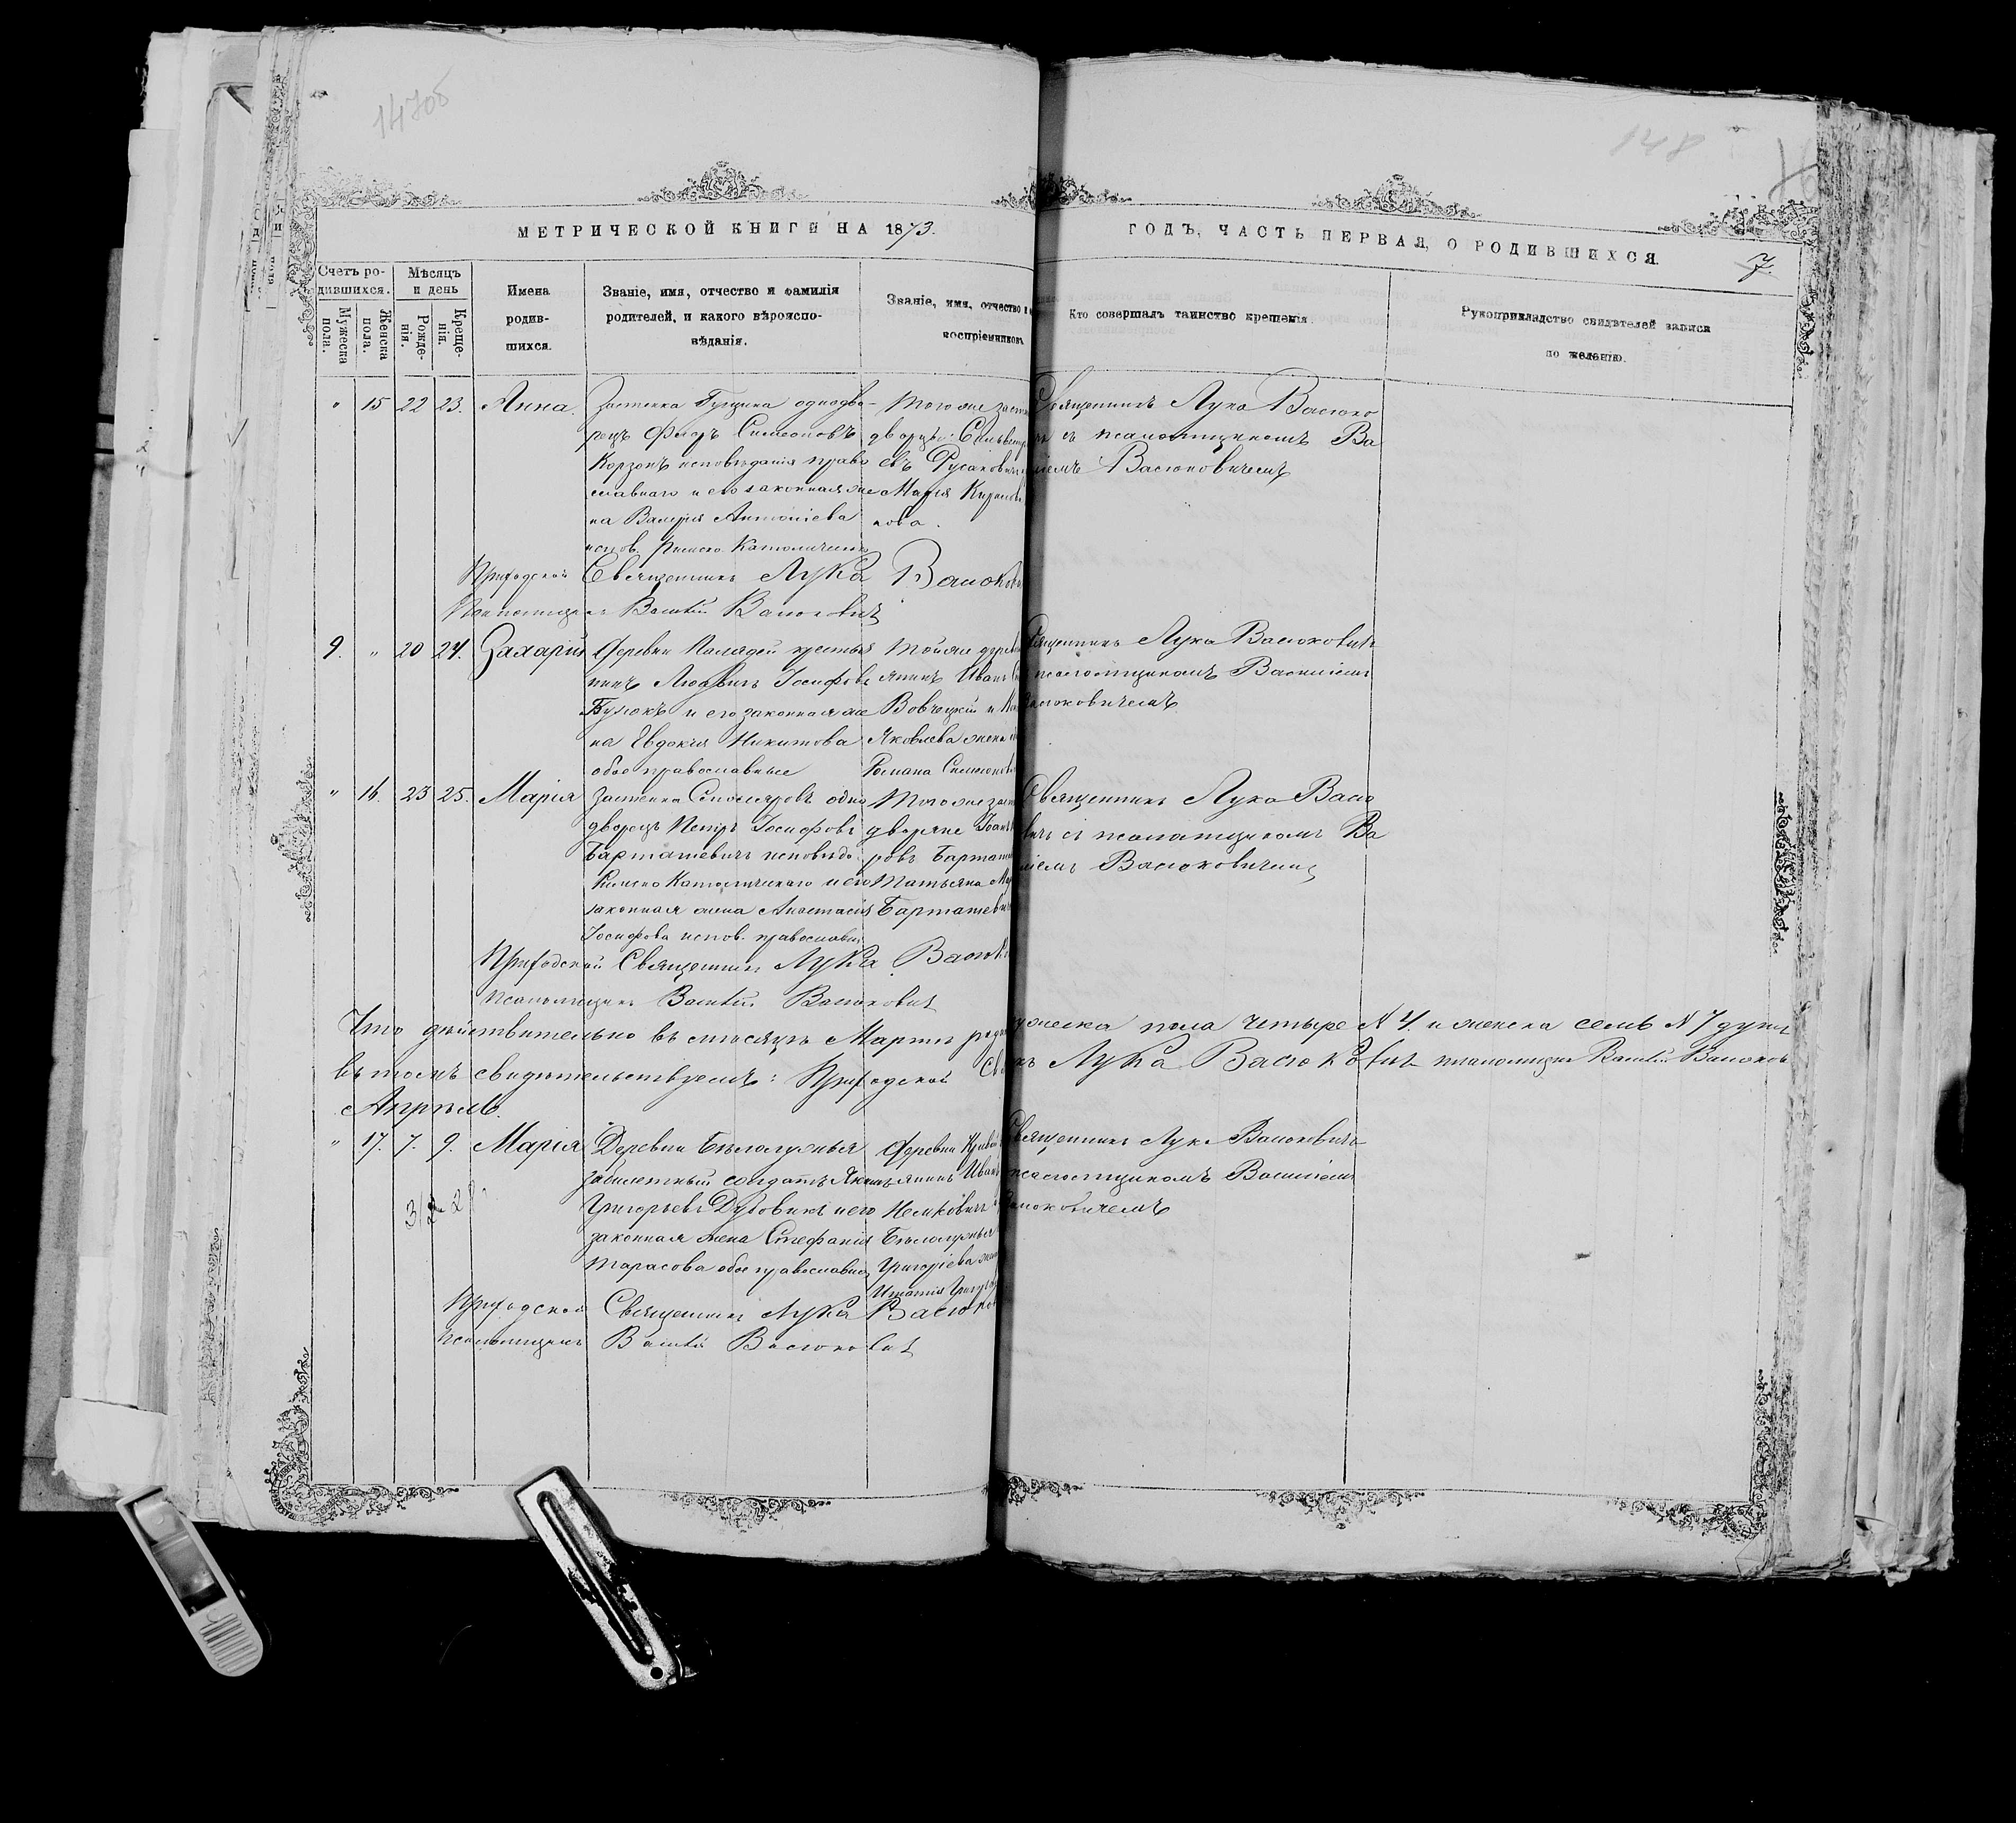 147об
148
МЕТРИЧЕСКОЙ КНИГИ НА 1873.
ГОДЪ, ЧАСТЬ ПЕРВАЯ, О РОДИВШИХСЯ.
7
Счетъ ро-
дившихся.
Мѣсяцъ
и день
Мужеска
пола.
Женска
пола.
Рожде-
нія.
Креще-
нія.
Имена
родив-
шихся.
Званіе, имя, отчество и фамилія
родителей, и какого вѣроиспо-
вѣданія.
Званіе, имя, отчество и
воспріемниковъ
Кто совершалъ таинство крещенія.
Рукоприкладство свидѣтелей записи
по желанію.
" 15 22 23. Анна.
Застенка однодво-
рецъ Симеоновъ
Корзонъ исповѣданія право
славнаго и его законная же
на Валерія Антоніева
испов. Римско Католическ
Того же заст
дворцы
евъ Русаковичъ
Марія
кова.
Священникъ Лука Васюко
чъ съ псаломщикомъ Ва
ліемъ Васюковичемъ
Приходской Священникъ Лука Васюков
Псаломщикъ Василій Васюковичъ
9. " 20 24. Захарій
деревни крестья
нинъ Іосифовъ
и его законная же
на Евдокія Никитова
обое православные
Той же дерев
янинъ Иванъ
и
Яковлева жена
Романа Симеонов
Священникъ Лука Васюковичъ
псаломщикомъ Василіемъ
Васюковичемъ
" 16. 23 25. Марія
Застенка одно
дворецъ Петръ Іосифовъ
Барташевичъ исповѣда
Римско Католическаго и его
законная жена Анастасія
Іосифова испов. православн
Того же заст
дворяне
ровъ Барташ
Татьяна
Барташевич
Священникъ Лука Васю
вичъ съ псаломщикомъ Ва
ліемъ Васюковичемъ
Приходской Священникъ Лука Васюк
Псаломщикъ Василій Васюковичъ
Что дѣйствительно въ мѣсяцѣ Мартѣ роди ужеска пола четыре N 4. и женска семь N 7 душъ
въ томъ свидѣтельствуемъ: Приходской Св къ Лука Васюковичъ псаломщикъ Василій Васюков
Апрѣль.
" 17. 7. 9. Марія
Деревни Бѣлолужья
билетный солдатъ
Григорьевъ Дубовикъ и его
законная жена Стефанія
Тарасова обое православн
деревни
янинъ Иван
Бѣлолужья
Григоріева жен
Игнатія
Священникъ Лука Васюковичъ
псаломщикомъ Василіемъ
Васюковичемъ
Приходской Священникъ Лука Васюко
Псаломщикъ Василій Васюковичъ